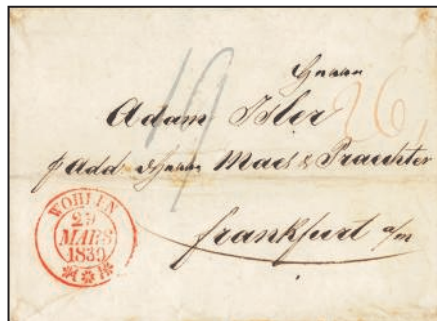 Herrn
Adam Isler
p Add: Herrn Maes & Prachter
Frankfurt a/m
19
26
WOHLEN
29
MARS
1839